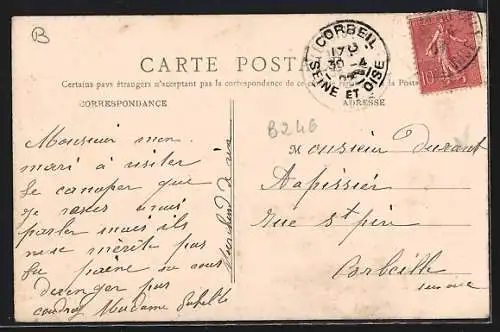 B
CARTE POSTALE
Certains pays étrangers n'acceptant pas la correspondance de ce
la Poste
CORRESPONDANCE
ADRESSE
CORBEIL
17
30 -4
SEINE ET OISE
10
B246
Monsieur mon
mari à visiter
le canaper que
je vous
parler mais ils
ne se mérite pas
la paine
deranger pas
Madame
Marchand de vin
Monsieur Durant
Tapissier
rue St
Corbeille